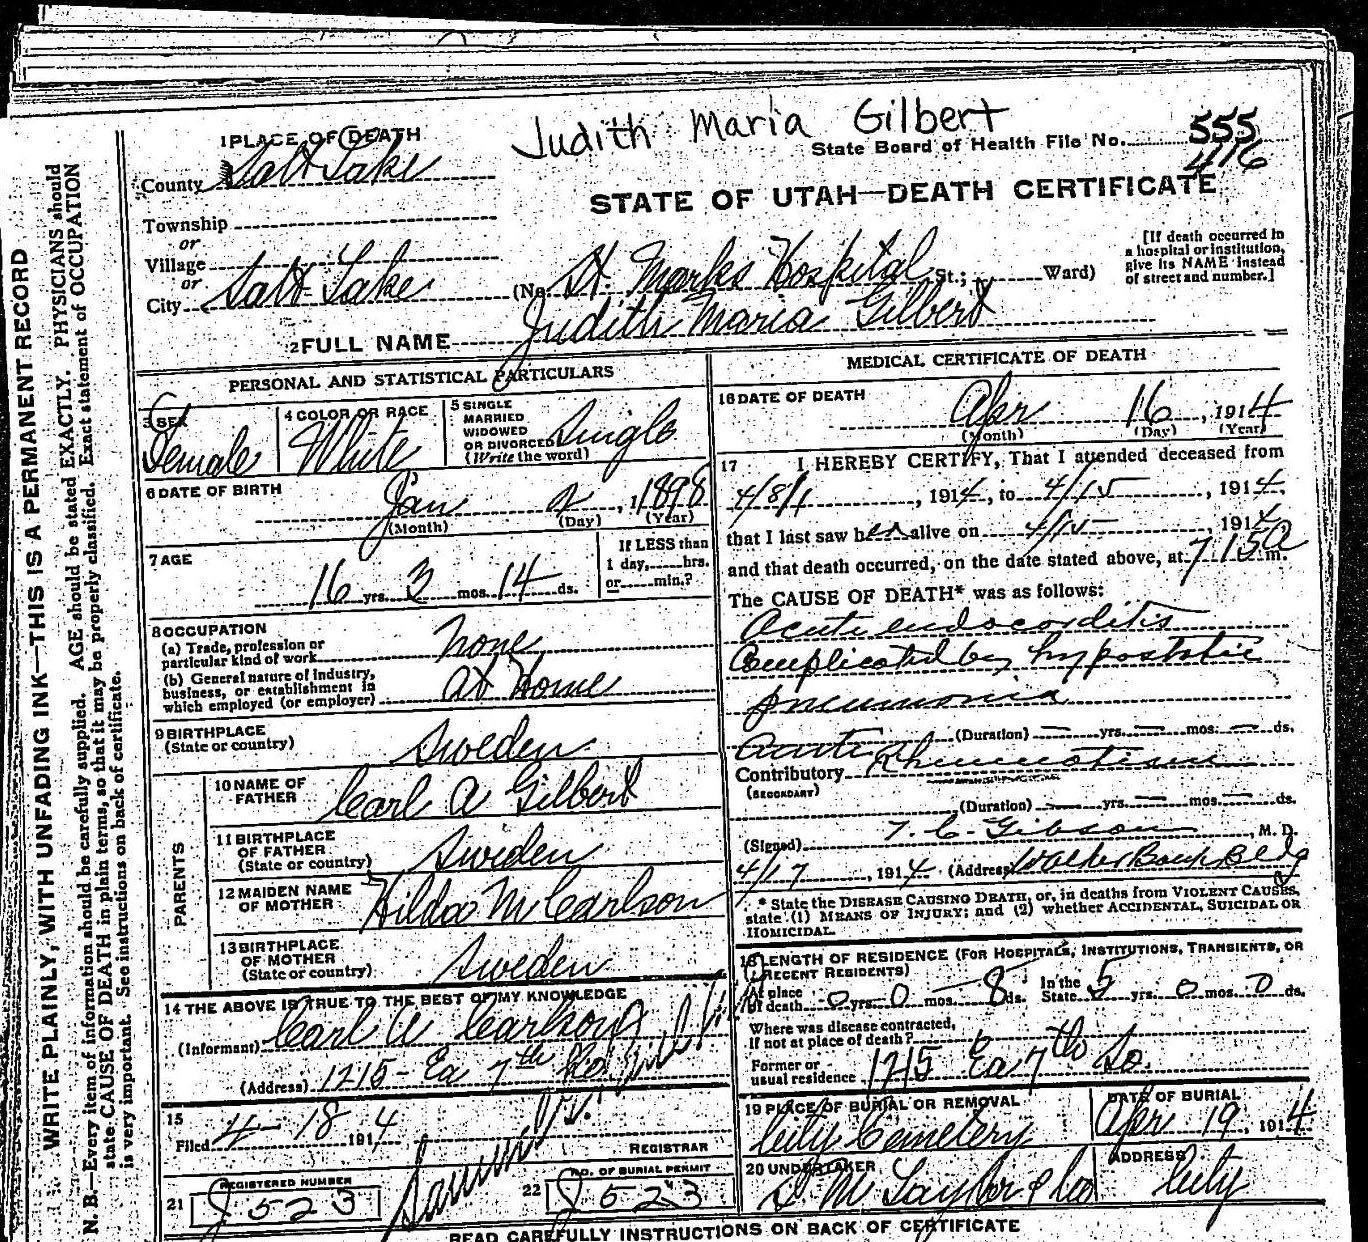 Judith Maria Gilbert
1 PLACE OF DEATH
State Board of Health File No. 555
416
County Salt Lake
STATE OF UTAH—DEATH CERTIFICATE
Township
or
Village
or
City Salt Lake (No. St. Marks Hospital St.; Ward)
[If death occurred in
a hospital or institution,
give its NAME instead
of street and number.]
2 FULL NAME Judith Maria Gilbert
PERSONAL AND STATISTICAL PARTICULARS
3 SEX
Female
4 COLOR OR RACE
White
5 SINGLE
MARRIED
WIDOWED
OR DIVORCED
(Write the word)
Single
6 DATE OF BIRTH
Jan 2, 1898
(Month) (Day) (Year)
7 AGE
16 yrs. 3 mos. 14 ds.
If LESS than
1 day, hrs.
or min.?
8 OCCUPATION
(a) Trade, profession or
particular kind of work
none
(b) General nature of industry,
business, or establishment in
which employed (or employer)
at Home
9 BIRTHPLACE
(State or country)
Sweden
PARENTS
10 NAME OF
FATHER
Carl A Gilbert
11 BIRTHPLACE
OF FATHER
(State or country)
Sweden
12 MAIDEN NAME
OF MOTHER
Hilda M Carlson
13 BIRTHPLACE
OF MOTHER
(State or country)
Sweden
14 THE ABOVE IS TRUE TO THE BEST OF MY KNOWLEDGE
(Informant) Carl A Carlson
(Address) 1215 - Ea 7th So.
15
Filed 4-18 1914
REGISTRAR
REGISTERED NUMBER
21 J 523
NO. OF BURIAL PERMIT
22 J 523
MEDICAL CERTIFICATE OF DEATH
16 DATE OF DEATH
Apr 16, 1914
(Month) (Day) (Year)
17 I HEREBY CERTIFY, That I attended deceased from
4/8/, 1914, to 4/15, 1914,
that I last saw her alive on 4/15, 1914
and that death occurred, on the date stated above, at 7 15 a m.
The CAUSE OF DEATH* was as follows:
Acute endocarditis
Complicated by hypostatic
pneumonia
(Duration) — yrs. — mos. — ds.
Acute
Contributory Rheumatism
(SECONDARY)
(Duration) — yrs. — mos. — ds.
(Signed) T. C. Gibson, M. D.
4/17, 1914 (Address) Walker Bank Bldg
* State the DISEASE CAUSING DEATH, or, in deaths from VIOLENT CAUSES,
state (1) MEANS OF INJURY; and (2) whether ACCIDENTAL, SUICIDAL OR
HOMICIDAL.
18 LENGTH OF RESIDENCE (FOR HOSPITALS, INSTITUTIONS, TRANSIENTS, OR
RECENT RESIDENTS)
At place
of death 0 yrs. 0 mos. 8 ds.
In the
State 5 yrs. 0 mos. 0 ds.
Where was disease contracted,
if not at place of death?
Former or
usual residence 1215 Ea 7th So.
19 PLACE OF BURIAL OR REMOVAL
City Cemetery
DATE OF BURIAL
Apr 19, 1914
20 UNDERTAKER
S M Taylor & Co
ADDRESS
City
READ CAREFULLY INSTRUCTIONS ON BACK OF CERTIFICATE
WRITE PLAINLY, WITH UNFADING INK—THIS IS A PERMANENT RECORD
N. B.—Every item of information should be carefully supplied. AGE should be stated EXACTLY. PHYSICIANS should
state CAUSE OF DEATH in plain terms, so that it may be properly classified. Exact statement of OCCUPATION
is very important. See instructions on back of certificate.